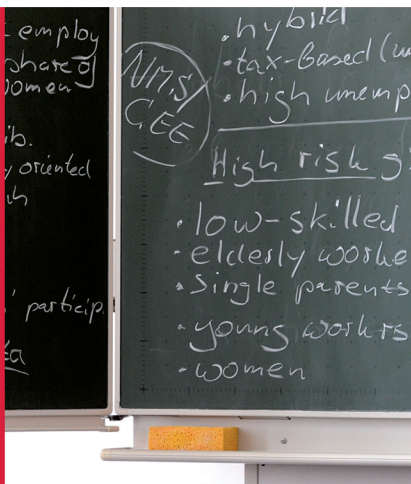 employ
share of
women
ib.
oriented
particip.
NMS/
CEE
• hybrid
• tax-based (un
• high unemp
High risk g
• low-skilled
• elderly worke
• single parents
• young workrs
• women